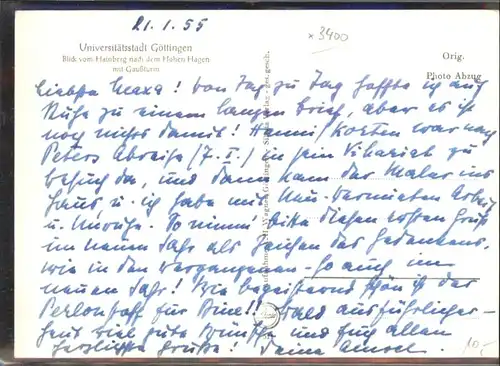 21.1.55
x 3400
Universitätsstadt Göttingen
Blick vom Hainberg nach dem Hohen Hagen
mit Gaußturm
Orig.
Photo Abzug
Liebste Maxa! Von Tag zu Tag hoffte ich auf
Ruhe zu einem langen Brief, aber es ist
noch nichts damit! Hanni / war nach
Peters Abreise (7.I.) in sein Vikariat zu
Besuch da, und dann kam der Maler ins
Haus u. ich habe mit Neu-Vermieten Arbeit
u. Unruhe. So nimm bitte diesen ersten Gruß
im neuen Jahr als Zeichen des Gedenkens,
wie in den vergangenen so auch im
neuen Jahr! Wie begeisternd schön ist der
Perlonstoff für Bine!! Bald ausführlicher
heut viel gute Wünsche und Euch allen
herzliche Grüße! Deine
10,-